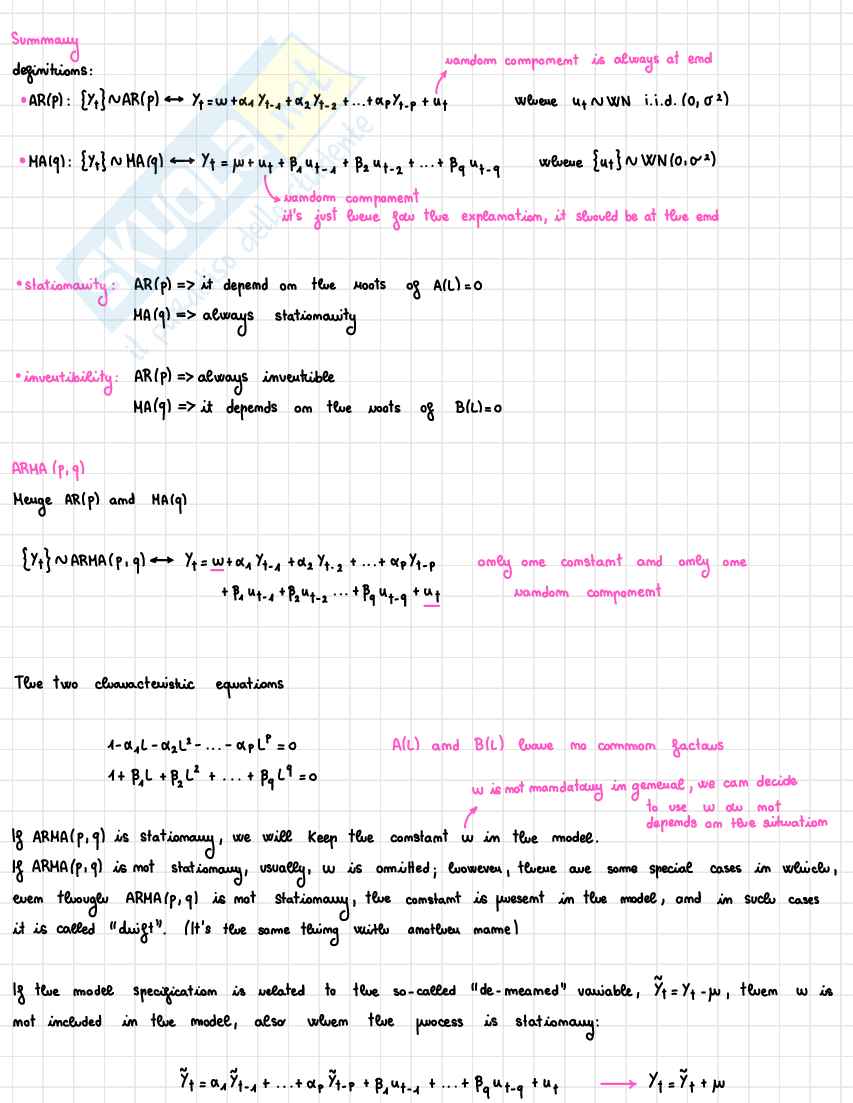 Summary
definitions:
random component is always at end
• AR(p): {Yt} ~ AR(p) ↔ Yt = ω + α1 Yt-1 + α2 Yt-2 + ... + αp Yt-p + ut where ut ~ WN i.i.d. (0, σ²)
• MA(q): {Yt} ~ MA(q) ↔ Yt = μ + ut + β1 ut-1 + β2 ut-2 + ... + βq ut-q where {ut} ~ WN(0, σ²)
random component
it's just here for the explanation, it should be at the end
SKUOLA.net
il paradiso dello studente
• stationarity: AR(p) => it depend on the roots of A(L)=0
MA(q) => always stationarity
• invertibility: AR(p) => always invertible
MA(q) => it depends on the roots of B(L)=0
ARMA (p,q)
Merge AR(p) and MA(q)
{Yt} ~ ARMA(p,q) ↔ Yt = ω + α1 Yt-1 + α2 Yt-2 + ... + αp Yt-p only one constant and only one
+ β1 ut-1 + β2 ut-2 ... + βq ut-q + ut random component
The two characteristic equations
1 - α1L - α2L² - ... - αpL^p = 0 A(L) and B(L) have no common factors
1 + β1L + β2L² + ... + βqL^q = 0
ω is not mandatory in general, we can decide
to use ω or not
depends on the situation
If ARMA(p,q) is stationary, we will keep the constant ω in the model.
If ARMA(p,q) is not stationary, usually, ω is omitted; however, there are some special cases in which,
even though ARMA(p,q) is not stationary, the constant is present in the model, and in such cases
it is called "drift". (It's the same thing with another name)
If the model specification is related to the so-called "de-meaned" variable, Ỹt = Yt - μ, then ω is
not included in the model, also when the process is stationary:
Ỹt = α1 Ỹt-1 + ... + αp Ỹt-p + β1 ut-1 + ... + βq ut-q + ut → Yt = Ỹt + μ